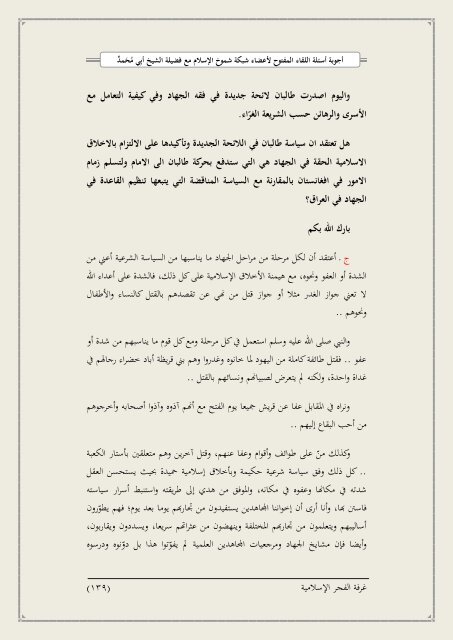 أجوبة أسئلة اللقاء المفتوح لأعضاء شبكة شموخ الإسلام مع فضيلة الشيخ أبي مُحَمدٌ
واليوم اصدرت طالبان لائحة جديدة في فقه الجهاد وفي كيفية التعامل مع
الأسرى والرهائن حسب الشريعة الغرّاء.
هل تعتقد ان سياسة طالبان في اللائحة الجديدة وتأكيدها على الالتزام بالاخلاق
الاسلامية الحقة في الجهاد هي التي ستدفع بحركة طالبان الى الامام ولتسلم زمام
الامور في افغانستان بالمقارنة مع السياسة المناقضة التي يتبعها تنظيم القاعدة في
الجهاد في العراق؟
بارك الله بكم
ج . أعتقد أن لكل مرحلة من مراحل الجهاد ما يناسبها من السياسة الشرعية أعني من
الشدة أو العفو ونحوه، مع هيمنة الأخلاق الإسلامية على كل ذلك، فالشدة على أعداء الله
لا تعني جواز الغدر مثلا أو جواز قتل من نهي عن تقصدهم بالقتل كالنساء والأطفال
ونحوهم ..
والنبي صلى الله عليه وسلم استعمل في كل مرحلة ومع كل قوم ما يناسبهم من شدة أو
عفو .. فقتل طائفة كاملة من اليهود لما خانوه وغدروا وهم بني قريظة أباد خضراء رجالهم في
غداة واحدة، ولكنه لم يتعرض لصبيانهم ونسائهم بالقتل ..
ونراه في المقابل عفا عن قريش جميعا يوم الفتح مع أنهم آذوه وآذوا أصحابه وأخرجوهم
من أحب البقاع إليهم ..
وكذلك منّ على طوائف وأقوام وعفا عنهم، وقتل آخرين وهم متعلقين بأستار الكعبة
.. كل ذلك وفق سياسة شرعية حكيمة وبأخلاق إسلامية حميدة بحيث يستحسن العقل
شدته في مكانها وعفوه في مكانه، والموفق من هدي إلى طريقته واستنبط أسرار سياسته
فاستن بها، وأنا أرى أن إخواننا المجاهدين يستفيدون من تجاربهم يوما بعد يوم؛ فهم يطوّرون
أساليبهم ويتعلمون من تجاربهم المختلفة وينهضون من عثراتهم سريعا، ويسددون ويقاربون،
وأيضا فإن مشايخ الجهاد ومرجعيات المجاهدين العلمية لم يفوّتوا هذا بل دوّنوه ودرسوه
غرفة الفجر الإسلامية
(١٣٩)